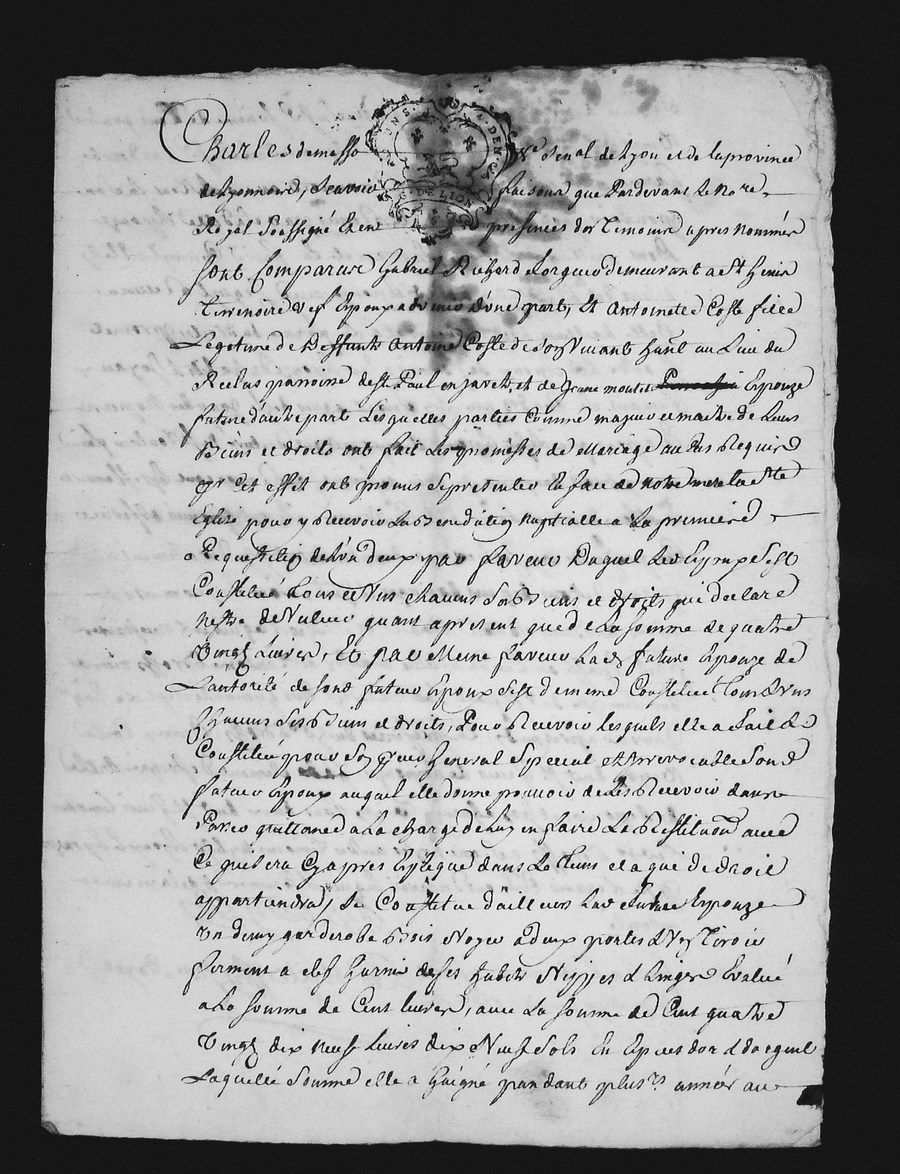 Charles de masso
UNS. 4. DEN.
G. DE LION
Senal de Lyon et de la province
de Lyonnois, scavoir faisons que Pardevant le no.re
Royal soussigné Et en presences des Temoins apres nommés
sont Comparus Gabriel Richard demeurant a St Genis
Terrenoire vef Epoux advenir d'une part, Et Antoinete Coste fille
Legitime de Deffunt Antoine Coste de son vivant au Lieu du
Reclus parroisse de St Paul en Jarets, et de Jeanne Epouze
future d'autre part Lesquelles parties Comme majeur et maitre de Leurs
Biens et droits ont fait Les promesses de Mariage au cas Requise
pr cet effet ont promis se presenter En face de notre mere la Ste
Eglise pour y Recevoir La Benediction nuptialle a La premiere
Requisition de L'un deux par faveur Duquel Led Epoux s'est
Constitué Tous et uns chacuns ses Biens et droits qui declare
nestre de valeur quant apresent que de La somme de quatre
vingt Livres, Et par Meme faveur Lad future Epouze de
L'autorité de sond futur Epoux s'est de meme Constituée Tous et uns
Chacuns ses Biens et droits, Pour Recevoir lesquels elle a fait &
Constitué pour son procur General special et Irrevocable sond
futur Epoux auquel elle donne pouvoir de Les Recevoir d'en
Passer quittance a La charge de Luy en faire La Restituon avec
Ce qui sera Cy apres Expliqué dans Le Tems et a qui de droit
appartiendra, Se Constitue d'ailleurs Lad future Epouze
Un demy garderobe Bois Noyer a deux portes & un Tiroir
fermant a clef Garnie de ses habits Nippes & Linges Evalué
a La somme de Cent livres, avec La somme de Cent quatre
vingt dix neuf Livres dix Neuf sols En Especes d'or & d'argent
Laquelle somme elle a Gaigné pandant plus.rs années au